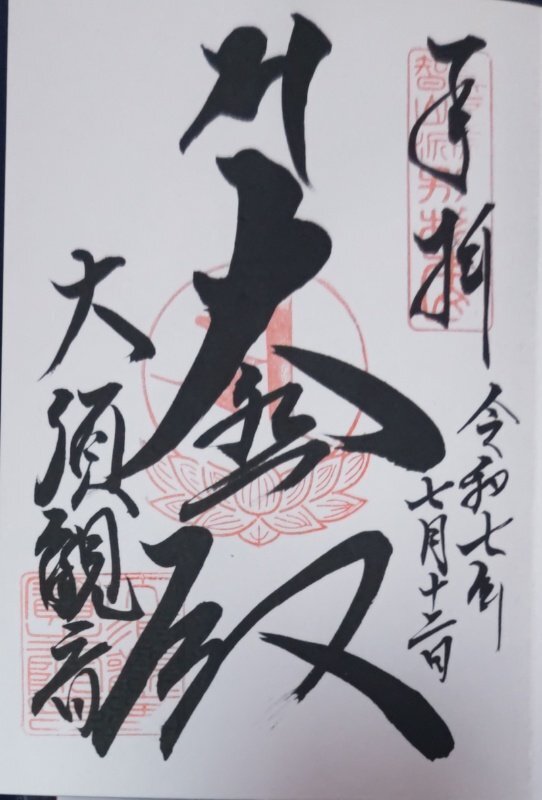 奉拝
令和七年
七月十二日
大悲殿
大須観音